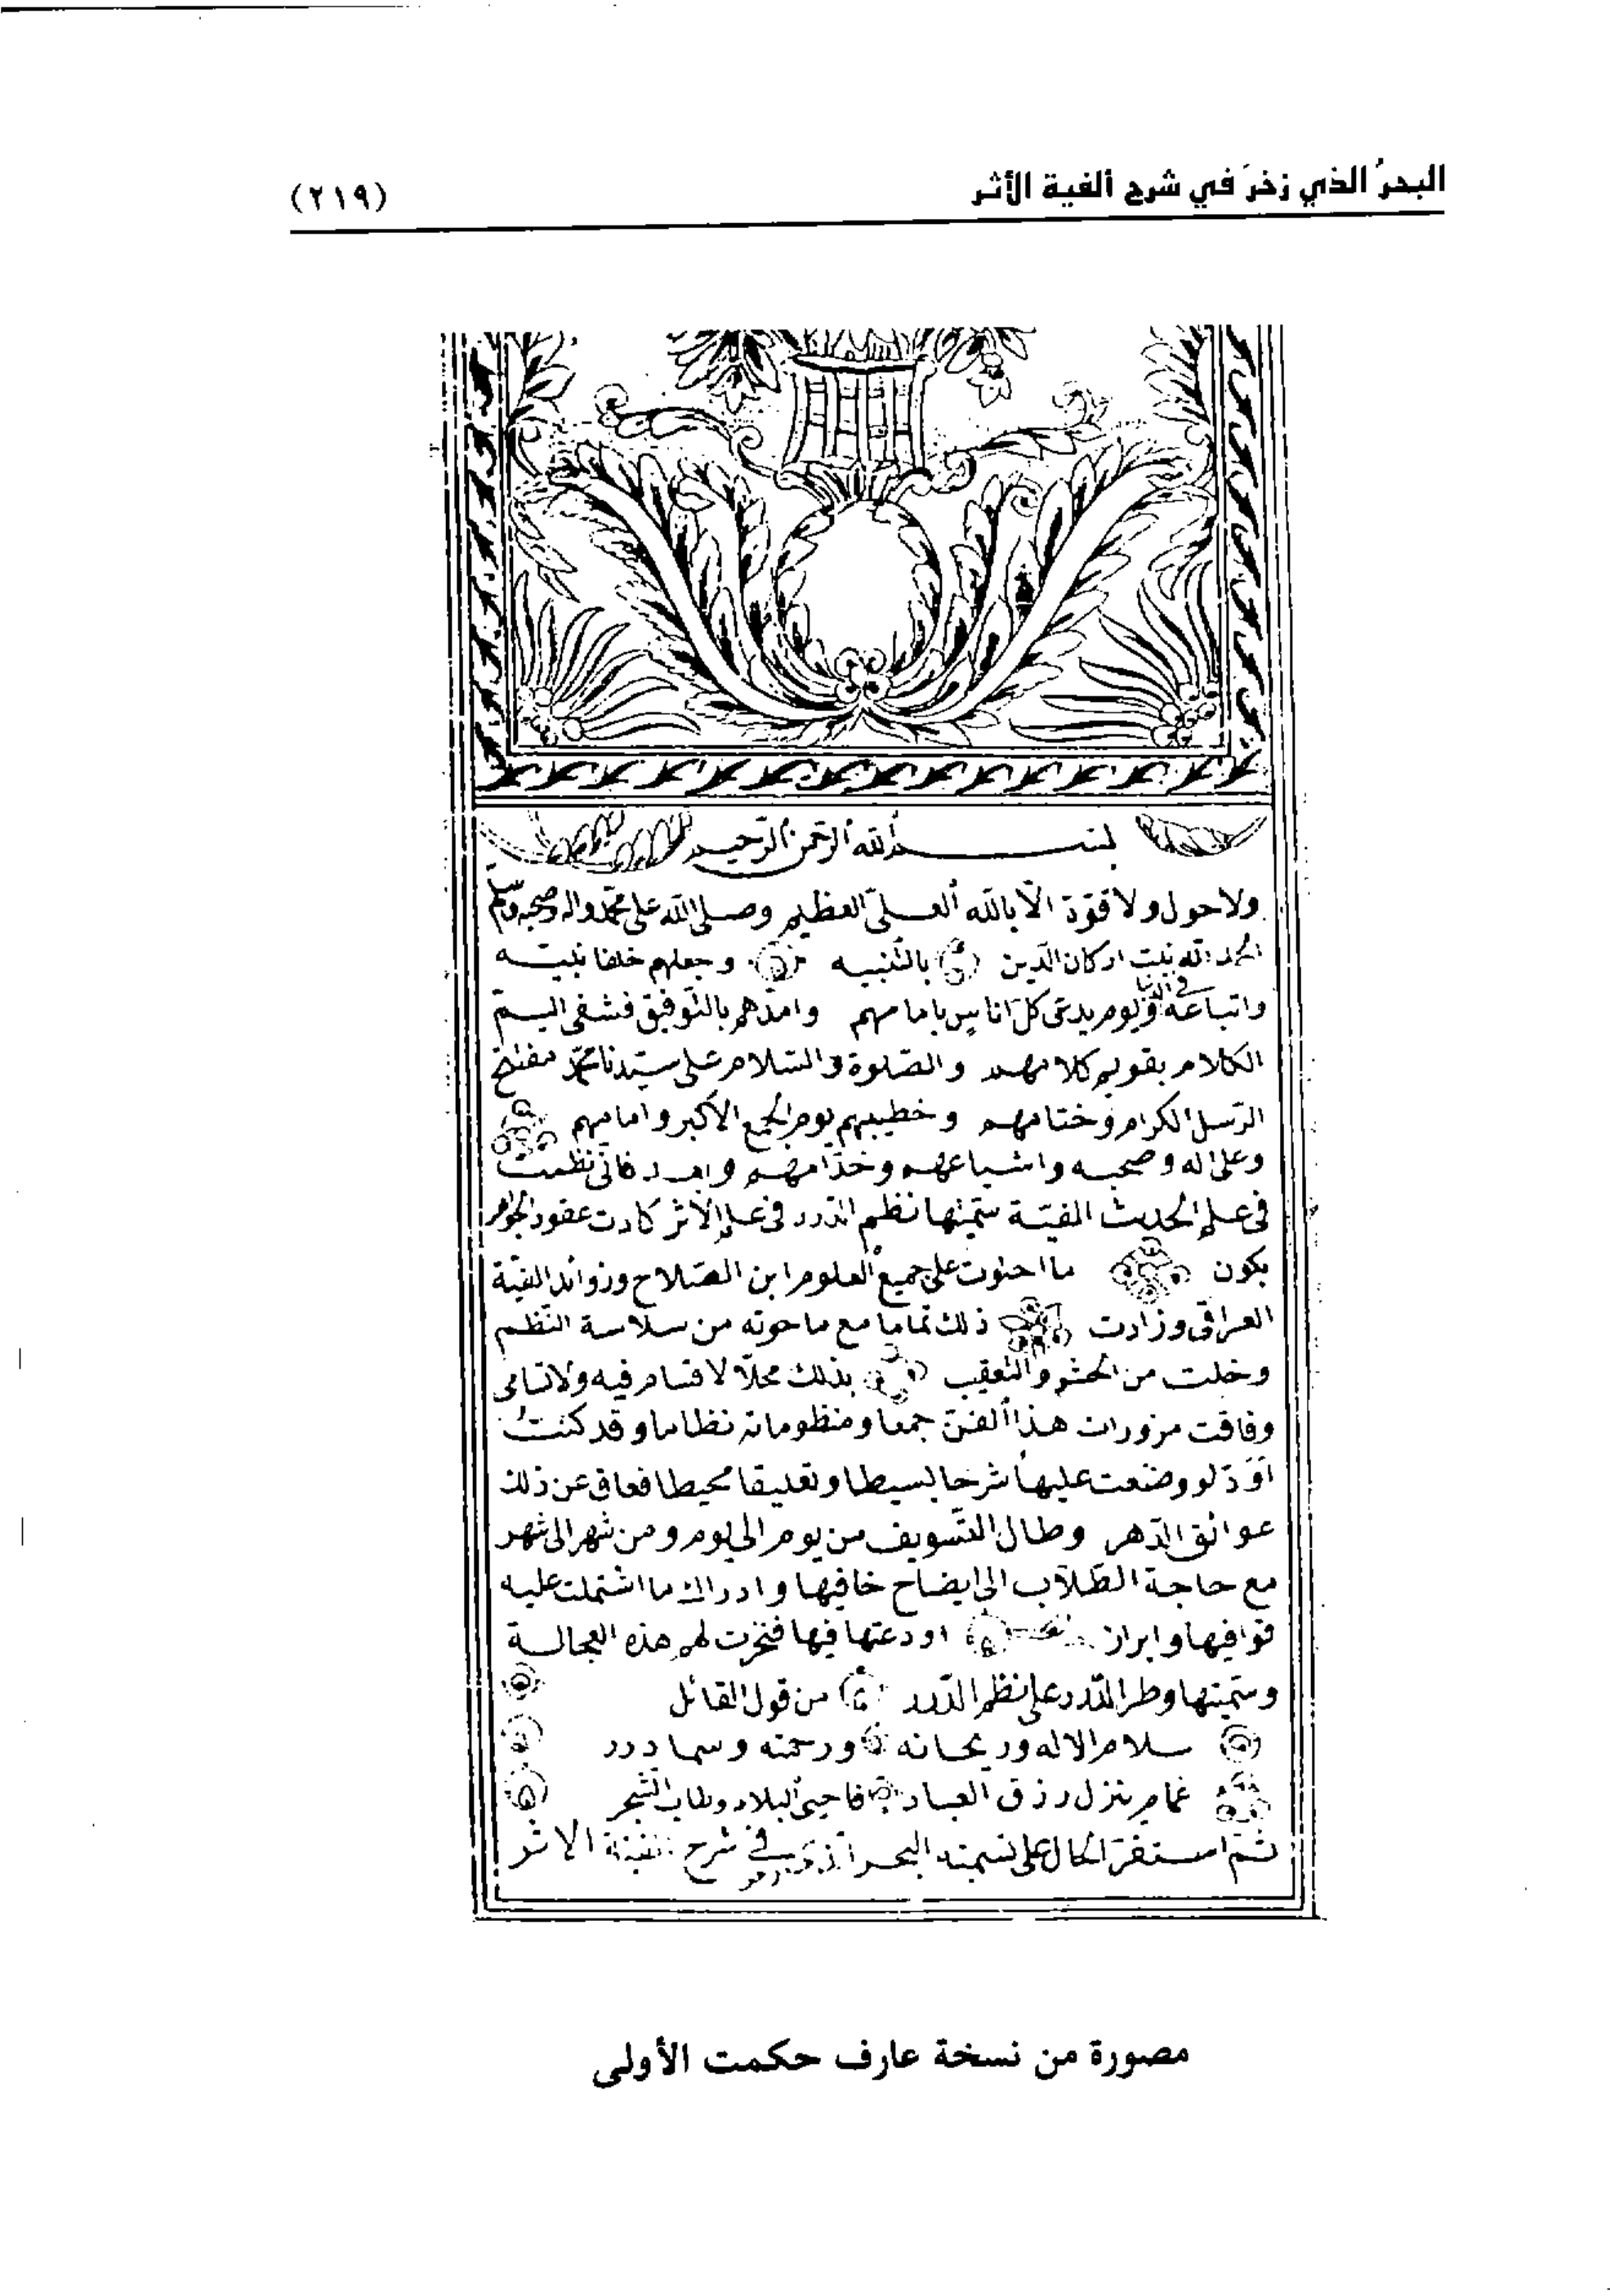 البحرُ الذي زخرَ في شرح ألفية الأثر
(٢١٩)
بسم الله الرحمن الرحيم
ولا حول ولا قوّة الّا بالله ألعلىّ العظيم وصلى الله على محمّد واله وصحبه وسلم
اركان الدّين بالتّنبيه وجعلهم خلفا نبيّه
واتباعه فى الدنيا ويوم يدعى كلّ اناس بامامهم وامدّهم بالتّوفيق فشفى
الكلام بقويم كلامهم والصّلوة والسّلام على سيّدنا محمّد مفتتح
الرّسل الكرام وختامهم وخطيبهم يوم الجمع الأكبر وامامهم
وعلى اله وصحبه واشياعهم وخدّامهم وبعد فانّى نظمت
فى علم الحديث الفيّة سمّيتها نظم الدّرر فى علم الأثر كادت عقود الجواهر
بكون ما احتوت على جميع ألعلوم ابن الصّلاح وزوائد الفيّة
العراقى وزادت ذلك تماما مع ما حوته من سلاسة النّظم
وخلت من الحشو والتّعقيب بذلك محلّا لاتسام فيه ولاتسامى
وفاقت مزورات هذا ألفنّ جمعا ومنظوماته نظاما وقد كنت
اودّ لو وضعت عليها شرحا بسيطا وتعليقا محيطا فعاق عن ذلك
عوائق الدّهر وطال التّسويف من يوم الى يوم ومن شهر الى شهر
مع حاجة الطّلّاب الى ايضاح خافيها وادراك ما اشتملت عليه
قوافيها وابراز اودعتها فيها فنجزت لهم هذه العجالة
وسمّيتها قطر الدّرر على نظم الدّرر من قول القائل
سلام الاله وريحانه ورحمته وسما درر
غمام ينزل رزق العباد فاحيى ألبلاد وطاب الشّجر
ثمّ استقرّ الحال على تسميته البحر الذى زخر فى شرح الفيّة الاثر
مصورة من نسخة عارف حكمت الأولى